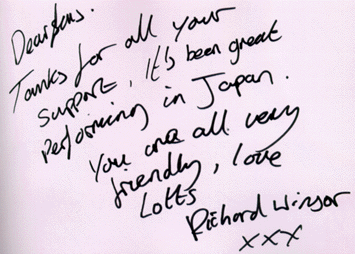 Dear fans.
Tanks for all your
support, It's been great
performing in Japan.
You are all very
friendly, love
Lotts
Richard Winsor
xxx